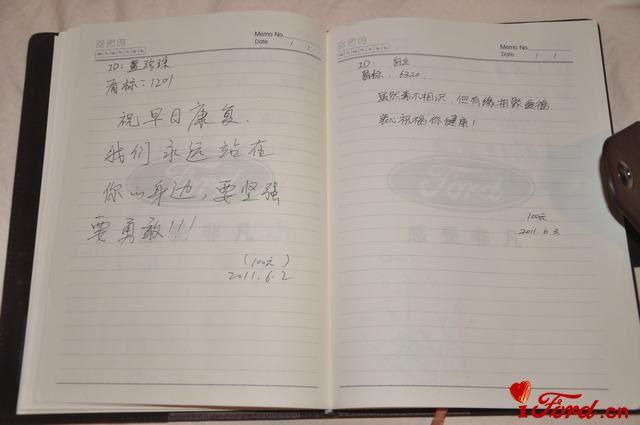 Memo No.
Date / /
ID: 蓝珍珠
车标: 1201
祝早日康复.
我们永远站在
你的身边, 要坚强
要勇敢!!!
(100元)
2011.6.2
Memo No.
Date / /
ID:
车标: 6320
虽然素不相识, 但有缘相聚
衷心祝福你健康!
100元
2011.6.3
Ford
感受非凡
iFord.cn